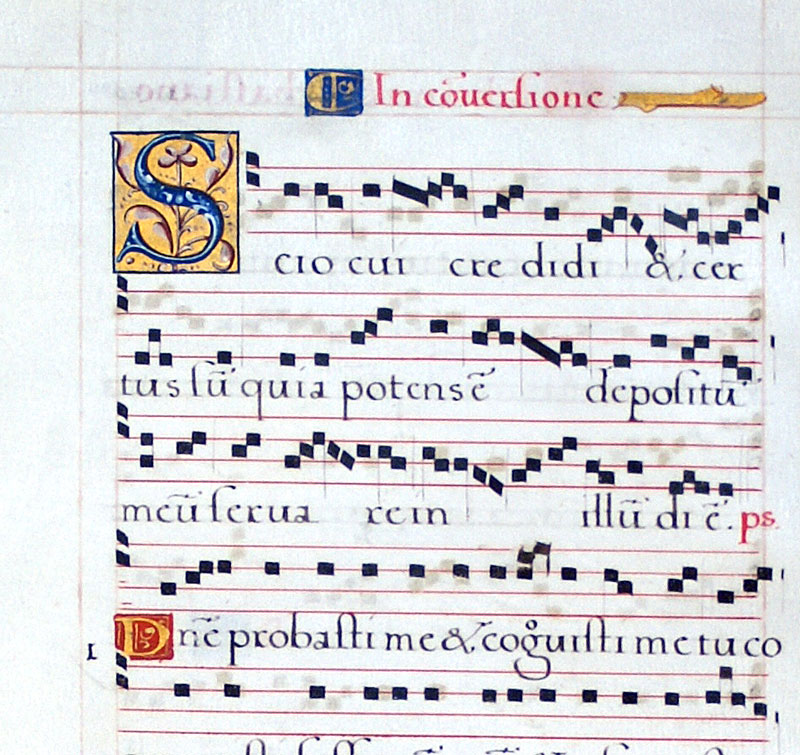 In cōuersione
Scio cui cre didi & cer
tus sū quia potens ē depositū
meū serua re in illū di ē. ps.
1 Dn̄e probasti me & cog̊uisti me tu co